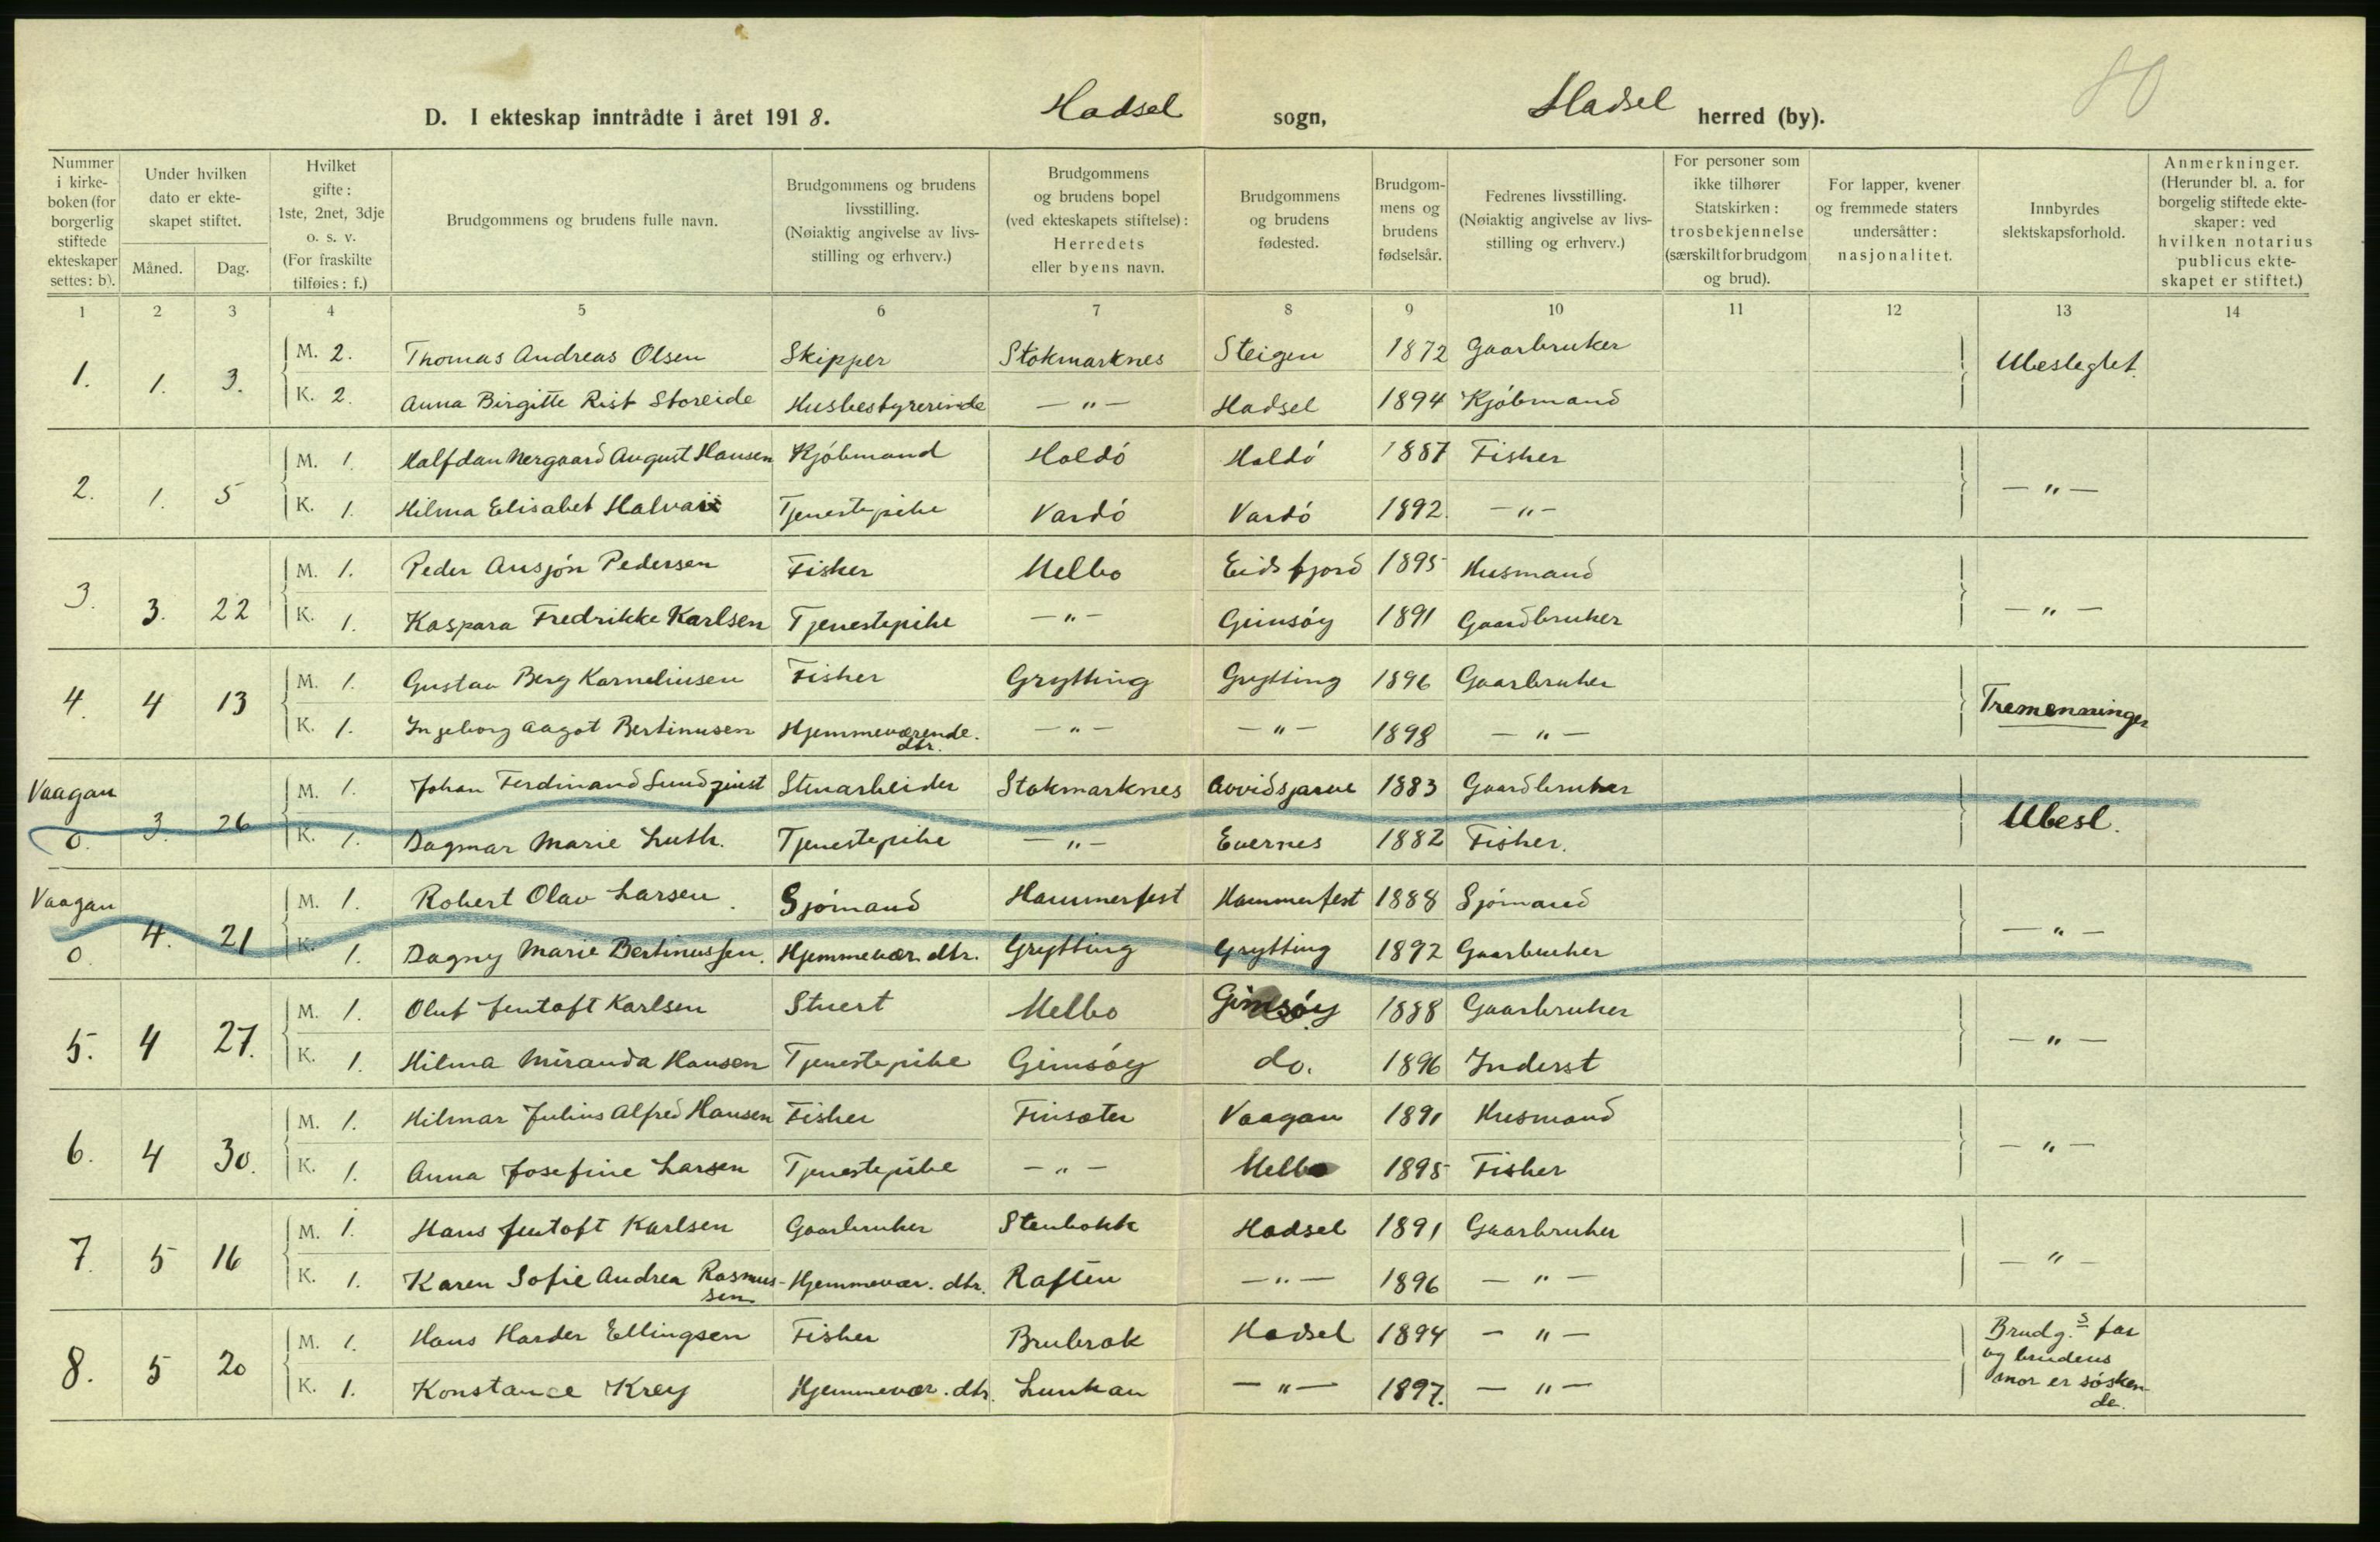 80
D. I ekteskap inntrådte i året 1918. Hadsel sogn, Hadsel herred (by).
Nummer i kirkeboken (for borgerlig stiftede ekteskaper settes: b).
Under hvilken dato er ekteskapet stiftet.
Måned. Dag.
Hvilket gifte: 1ste, 2net, 3dje o. s. v. (For fraskilte tilføies: f.)
Brudgommens og brudens fulle navn.
Brudgommens og brudens livsstilling. (Nøiaktig angivelse av livsstilling og erhverv.)
Brudgommens og brudens bopel (ved ekteskapets stiftelse): Herredets eller byens navn.
Brudgommens og brudens fødested.
Brudgommens og brudens fødselsår.
Fedrenes livsstilling. (Nøiaktig angivelse av livsstilling og erhverv.)
For personer som ikke tilhører Statskirken: trosbekjennelse (særskilt for brudgom og brud).
For lapper, kvener og fremmede staters undersåtter: nasjonalitet.
Innbyrdes slektskapsforhold.
Anmerkninger. (Herunder bl. a. for borgelig stiftede ekteskaper: ved hvilken notarius publicus ekteskapet er stiftet.)
1 2 3 4 5 6 7 8 9 10 11 12 13 14
1. 1. 3. M. 2. Thomas Andreas Olsen Skipper Stokmarknes Steigen 1872 Gaarbruker Ubeslegtet.
K. 2. Anna Birgitte Rist Storeide Husbestyrerinde — " — Hadsel 1894 Kjöbmand
2. 1. 5 M. 1. Halfdan Nergaard August Hansen Kjöbmand Holdö Holdö 1887 Fisker — " —
K. 1. Hilma Elisabet Halvari Tjenestepike Vardö Vardö 1892. — " —
3. 3. 22 M. 1. Peder Ansjön Pedersen Fisker Melbo Eidsfjord 1895 Husmand — " —
K. 1. Kaspara Fredrikke Karlsen Tjenestepike — " — Gimsöy 1891 Gaardbruker
4. 4 13 M. 1. Gustav Berg Korneliusen Fisker Grytting Grytting 1896 Gaarbruker Tremenninger
K. 1. Ingeborg Aagot Bertinusen Hjemmeværende. dtr. — " — — " — 1898 — " —
Vaagan 0. 3. 26 M. 1. Johan Ferdinand Sundquist Stenarbeider Stokmarknes Arvidsjarve 1883 Gaardbruker Ubesl.
K. 1. Dagmar Marie Luth. Tjenestepike — " — Evernes 1882 Fisker.
Vaagan 0. 4. 21 M. 1. Robert Olav Larsen. Sjömand Hammerfest Hammerfest 1888 Sjömand — " —
K. 1. Dagny Marie Bertinussen. Hjemmevær. dtr. Grytting Grytting 1892 Gaarbruker
5. 4 27. M. 1. Oluf Jentoft Karlsen Stuert Melbo Gimsöy 1888 Gaarbruker — " —
K. 1. Hilma Miranda Hansen Tjenestepike Gimsöy do. 1896 Inderst
6. 4 30. M. 1. Hilmar Julius Alfred Hansen Fisker Finsæter Vaagan 1891 Husmand — " —
K. 1. Anna Josefine Larsen Tjenestepike — " — Melbo 1895 Fisker
7. 5 16 M. 1. Hans Jentoft Karlsen Gaarbruker Stenbakk Hadsel 1891 Gaarbruker — " —
K. 1. Karen Sofie Andrea Rasmussen Hjemmevær. dtr. Raften — " — 1896 — " —
8. 5 20 M. 1. Hans Harder Ellingsen Fisker Brubrok Hadsel 1894 — " — Brudg.s far
K. 1. Konstance Krey Hjemmevær. dtr. Lunkan — " — 1897. — " — og brudens
mor er sösken
de.